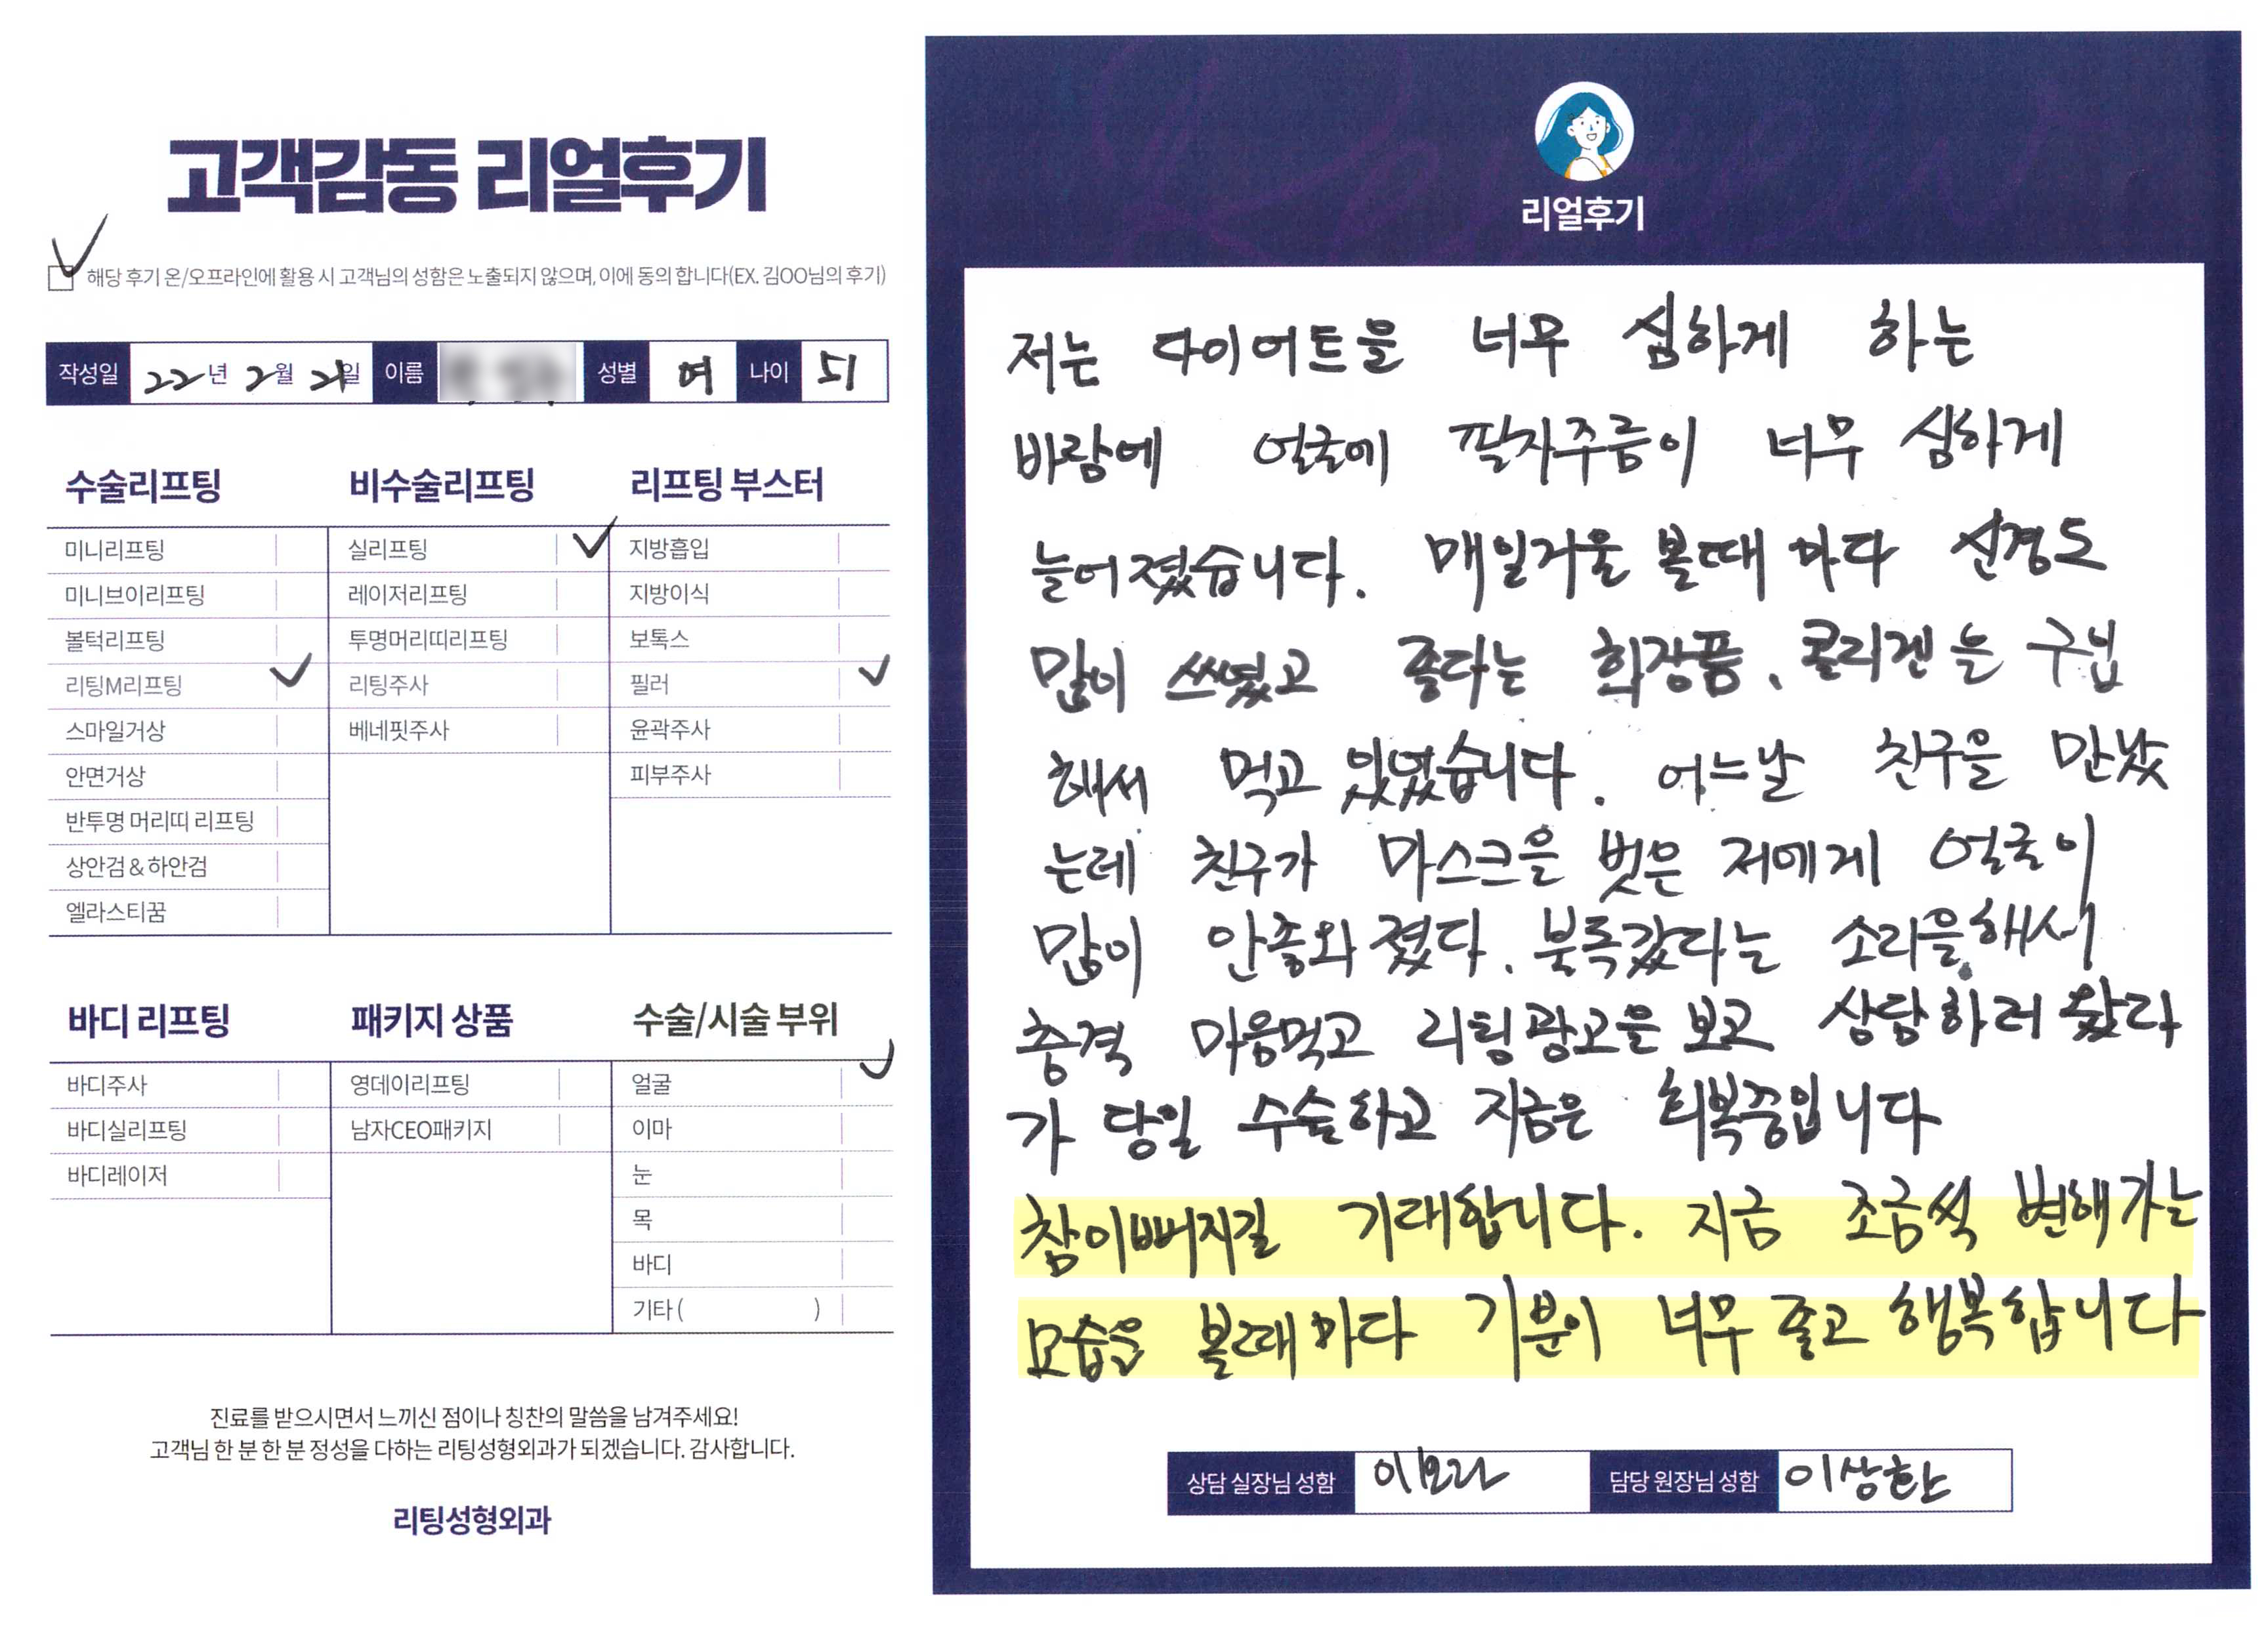 고객감동 리얼후기
해당 후기 온/오프라인에 활용 시 고객님의 성함은 노출되지 않으며, 이에 동의 합니다(EX. 김OO님의 후기)
작성일 22년 2월 21일 이름 성별 여 나이 51
수술리프팅
미니리프팅
미니브이리프팅
볼턱리프팅
리팅M리프팅
스마일거상
안면거상
반투명 머리띠 리프팅
상안검&하안검
엘라스티꿈
비수술리프팅
실리프팅
레이저리프팅
투명머리띠리프팅
리팅주사
베네핏주사
리프팅 부스터
지방흡입
지방이식
보톡스
필러
윤곽주사
피부주사
바디 리프팅
바디주사
바디실리프팅
바디레이저
패키지 상품
영데이리프팅
남자CEO패키지
수술/시술 부위
얼굴
이마
눈
목
바디
기타 ( )
진료를 받으시면서 느끼신 점이나 칭찬의 말씀을 남겨주세요!
고객님 한 분 한 분 정성을 다하는 리팅성형외과가 되겠습니다. 감사합니다.
리팅성형외과
리얼후기
저는 다이어트을 너무 심하게 하는
바람에 얼굴에 팔자주름이 너무 심하게
늘어졌습니다. 매일거울 볼때 마다 신경도
많이 쓰였고 좋다는 화장품, 콜리겐 을 구입
해서 먹고 있었습니다. 어느날 친구을 만났
는데 친구가 마스크을 벗은 저에게 얼굴이
많이 안좋와 졌다. 북록갔다는 소리을해서
충격 마음먹고 리팅광고을 보고 상담하러 왔다
가 당일 수술하고 지금은 회복중입니다
참이뻐지길 기대합니다. 지금 조금씩 변해가는
모습을 볼때 마다 기분이 너무 좋고 행복합니다
상담 실장님 성함 이보라 담당 원장님 성함 이상한